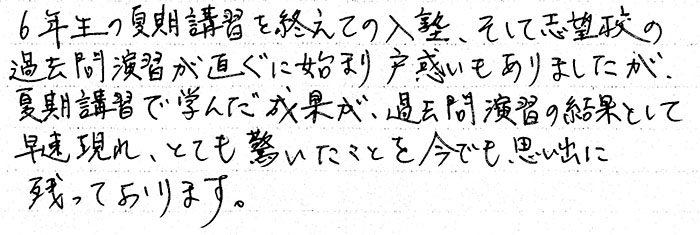 6年生の夏期講習を終えての入塾、そして志望校の
過去問演習が直ぐに始まり戸惑いもありましたが、
夏期講習で学んだ成果が、過去問演習の結果として
早速現れ、とても驚いたことを今でも思い出に
残っております。